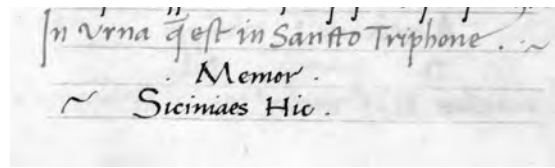 In Vrna q̄ est in Sancto Triphone . ~
. Memor .
~ Siciniaes Hic .